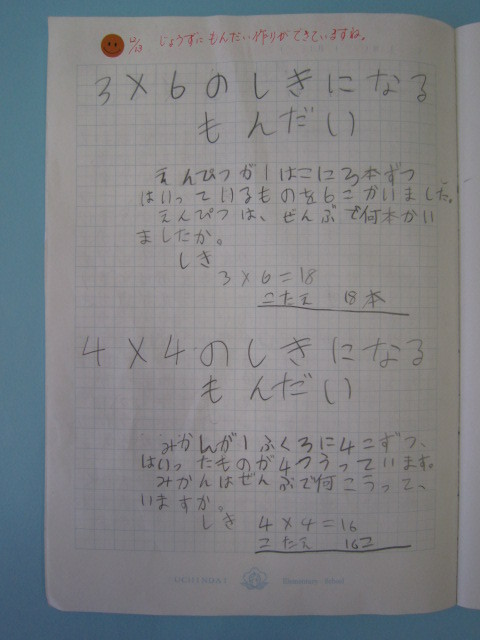 12/13 じょうずにもんだい作りができていますね。
3×6のしきになる
もんだい
えんぴつが1はこに3本ずつ
はいっているものを6こかいました。
えんぴつは、ぜんぶで何本かい
ましたか。
しき
3×6=18
こたえ 18本
4×4のしきになる
もんだい
みかんが1ふくろに4こずつ、
はいったものが4つうっています。
みかんはぜんぶで何こうって、
いますか。
しき 4×4=16
こたえ 16こ
Elementary School